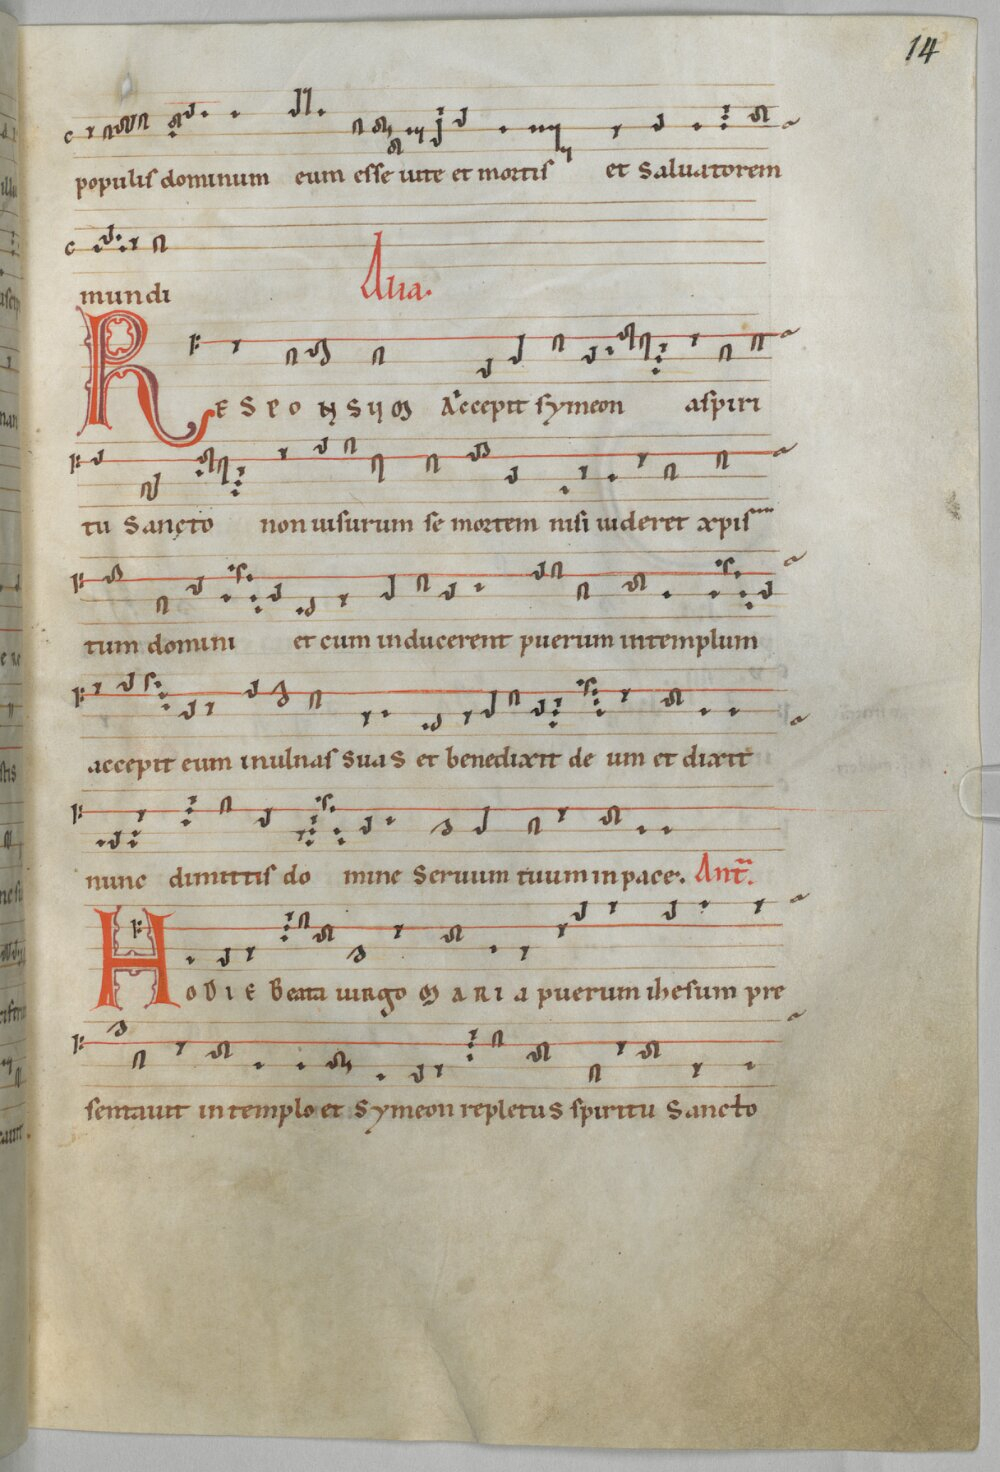 14
populis dominum eum esse uite et mortis et Saluatorem
mundi Alia.
RESPONSUM Accepit symeon aspiri
tu Sancto non uisurum se mortem nisi uideret xpis
tum domini et cum inducerent puerum intemplum
accepit eum inulnas suas et benedixit de um et dixit
nunc dimittis do mine Seruum tuum in pace. Ant.
HODIE Beata uirgo MARIA puerum ihesum pre
sentauit in templo et Symeon repletus spiritu Sancto